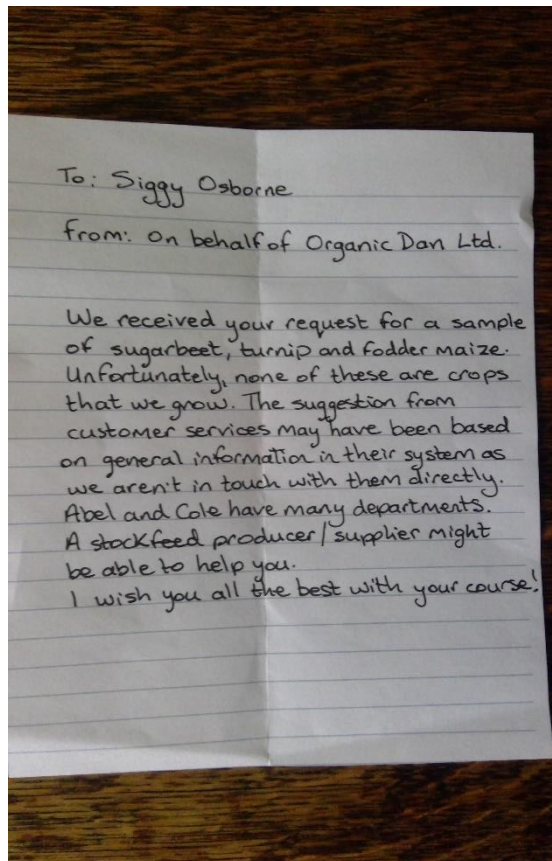 To: Siggy Osborne
from: on behalf of Organic Dan Ltd.
We received your request for a sample
of sugarbeet, turnip and fodder maize.
Unfortunately, none of these are crops
that we grow. The suggestion from
customer services may have been based
on general information in their system as
we aren't in touch with them directly.
Abel and Cole have many departments.
A stockfeed producer/supplier might
be able to help you.
I wish you all the best with your course!